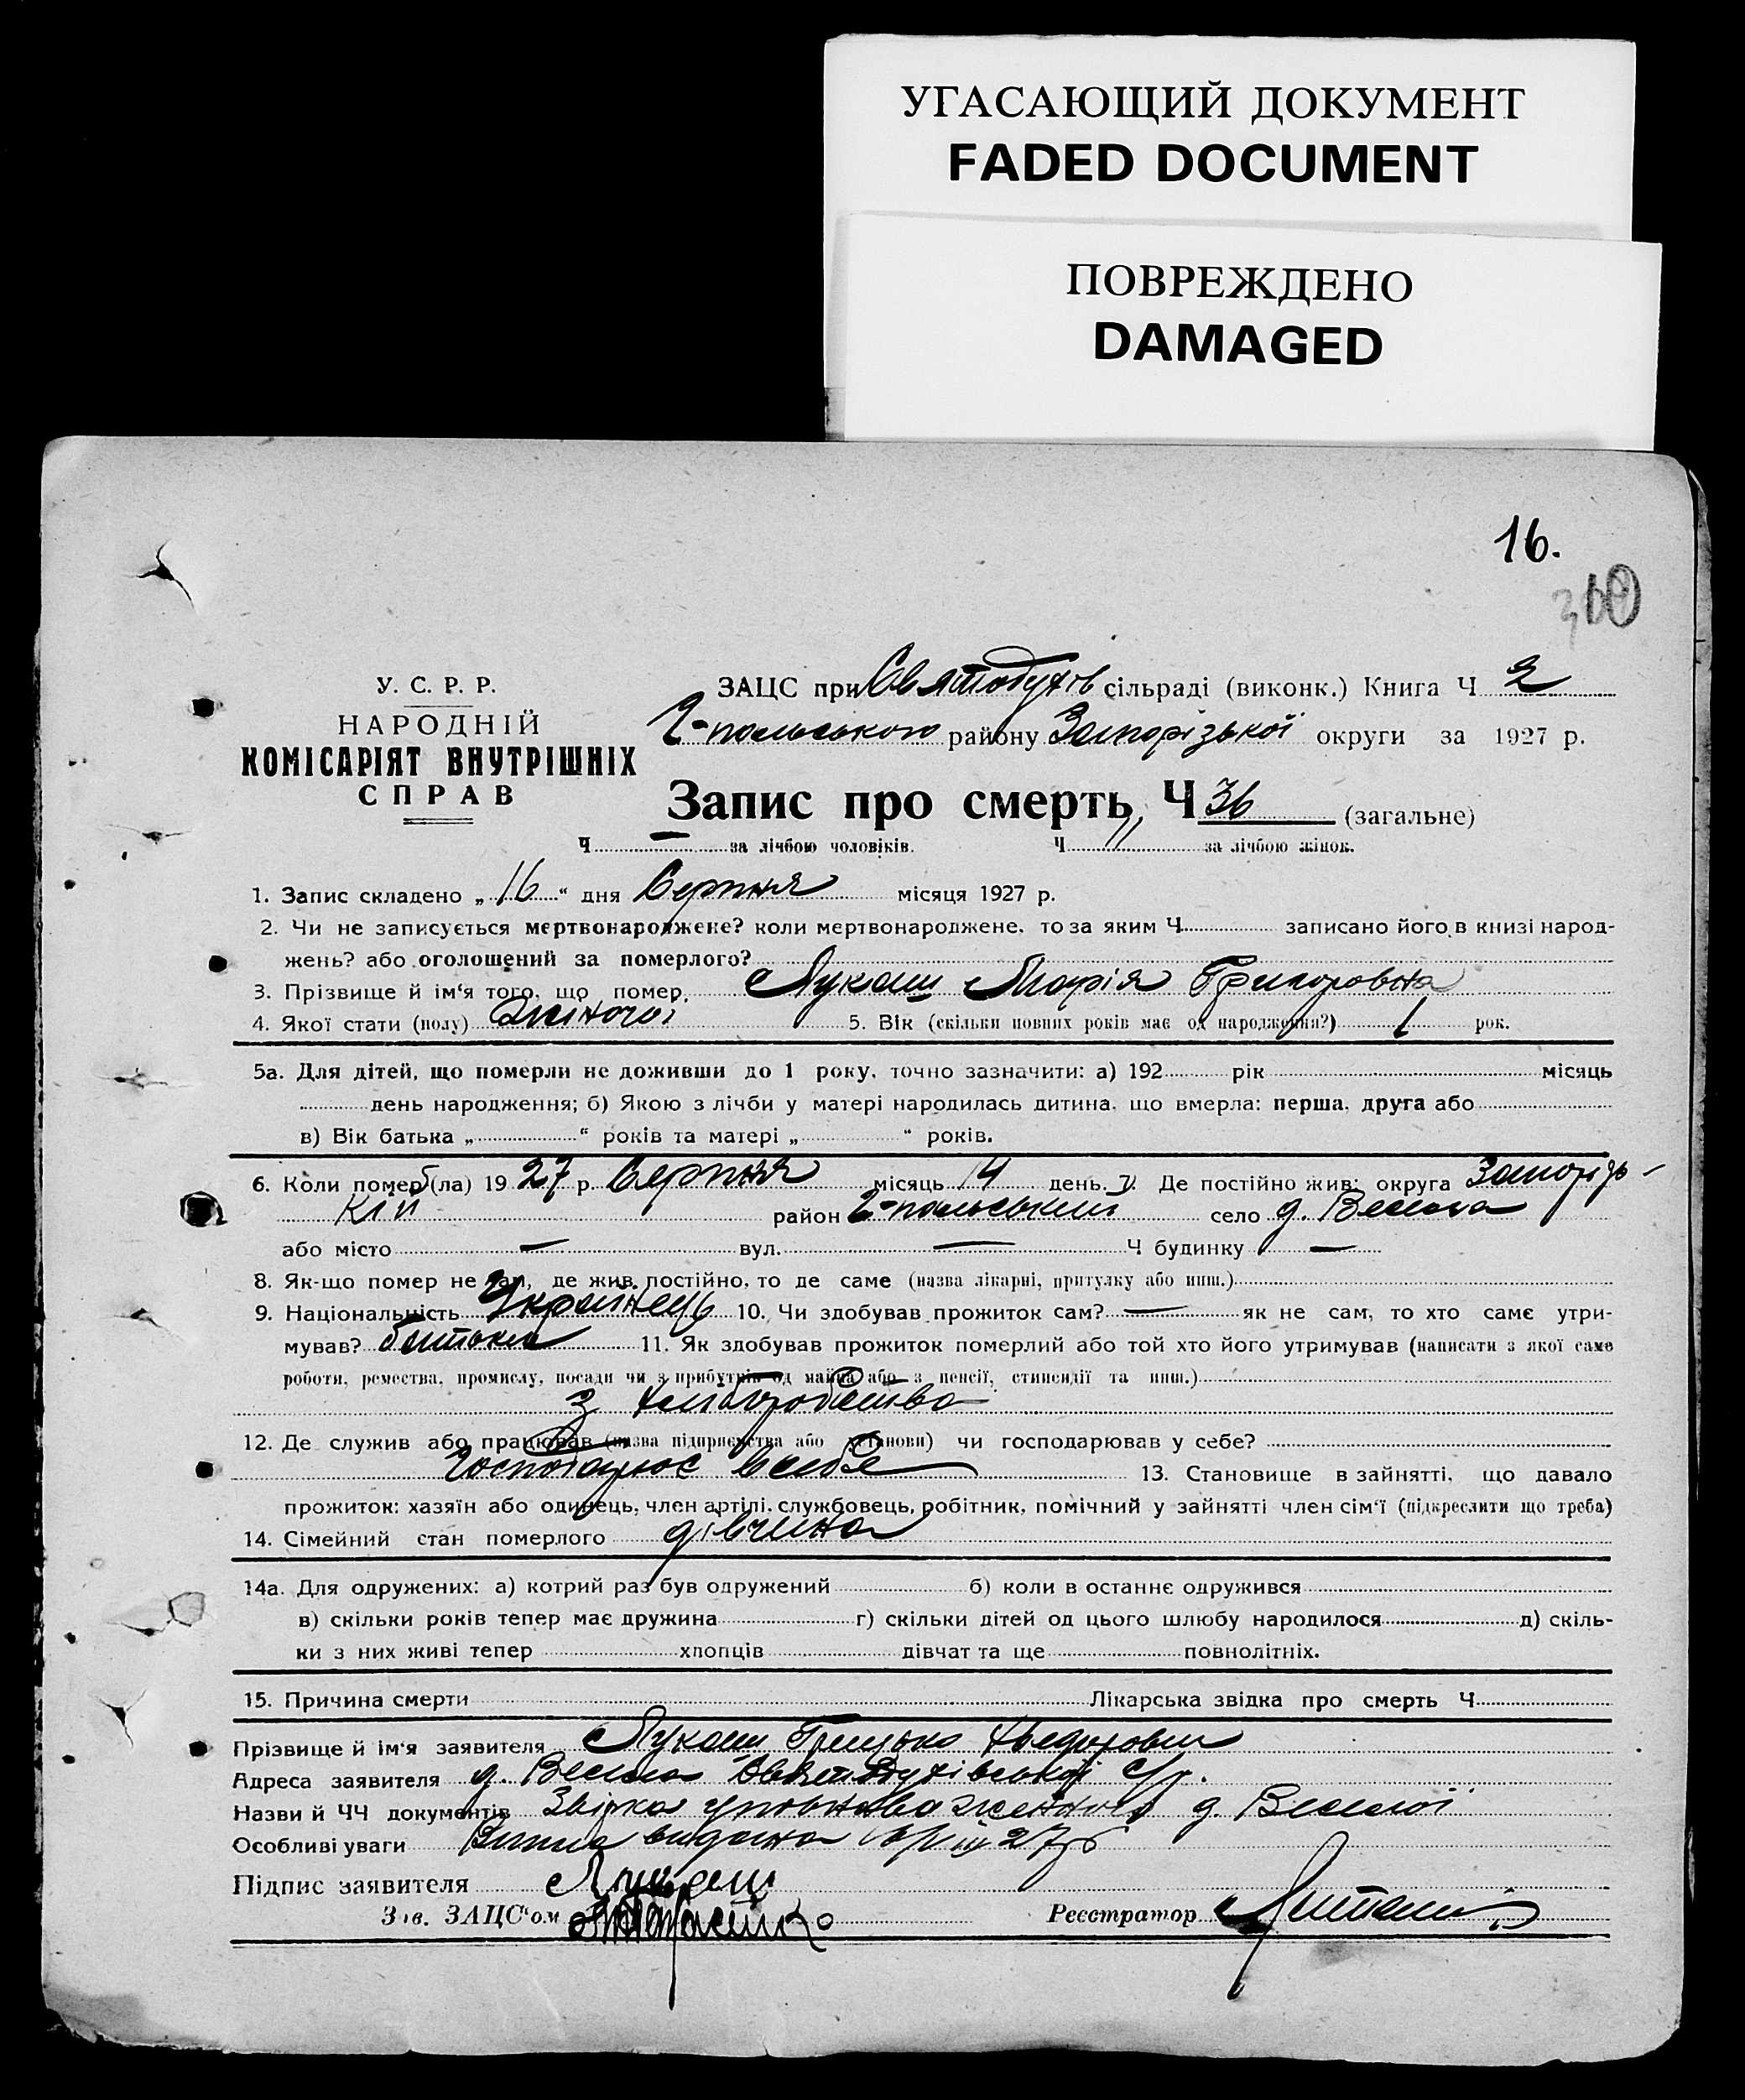 УГАСАЮЩИЙ ДОКУМЕНТ
FADED DOCUMENT
ПОВРЕЖДЕНО
DAMAGED
16.
У. С. Р. Р.
НАРОДНІЙ
КОМІСАРІЯТ ВНУТРІШНІХ
СПРАВ
ЗАЦС при Святодухів сільраді (виконк.) Книга Ч 2
Г-польського району Запорізької округи за 1927 р.
Запис про смерть Ч 36 (загальне)
Ч — за лічбою чоловіків. Ч 11 за лічбою жінок.
1. Запис складено „ 16 “ дня Серпня місяця 1927 р.
2. Чи не записується мертвонароджене? коли мертвонароджене, то за яким Ч записано його в книзі народ-
жень? або оголошений за померлого?
3. Прізвище й ім‘я того, що помер, Лукаш Марія Григоровна
4. Якої стати (полу) Жіночої 5. Вік (скільки повних років має од народження?) 1 рок.
5а. Для дітей, що померли не доживши до 1 року, точно зазначити: а) 192 рік місяць
день народження; б) Якою з лічби у матері народилась дитина, що вмерла: перша, друга або
в) Вік батька „ “ років та матері „ “ років.
6. Коли помер (ла) 19 27 р. Серпня місяць 14 день. 7. Де постійно жив: округа Запоріз-
кій район Г-польський село д. Весела
або місто — вул. — Ч будинку —
8. Як-що помер не там, де жив постійно, то де саме (назва лікарні, притулку або инш.)
9. Національність Українець 10. Чи здобував прожиток сам? — як не сам, то хто саме утри-
мував? батько 11. Як здобував прожиток померлий або той хто його утримував (написати з якої саме
роботи, ремества, промислу, посади чи з прибутків од майна або з пенсії, стипендії та инш.)
з хліборобства
12. Де служив або працював (назва підприємства або установи) чи господарював у себе?
Господарює в себе 13. Становище в зайнятті, що давало
прожиток: хазяїн або одинець, член артілі, службовець, робітник, помічний у зайнятті член сім‘ї (підкреслити що треба)
14. Сімейний стан померлого дівчина
14а. Для одружених: а) котрий раз був одружений б) коли в останнє одружився
в) скільки років тепер має дружина г) скільки дітей од цього шлюбу народилося д) скіль-
ки з них живі тепер хлопців дівчат та ще повнолітніх.
15. Причина смерти Лікарська звідка про смерть Ч
Прізвище й ім‘я заявителя Лукаш Грицько
Адреса заявителя д. Весела Святодухівської с/р.
Назви й ЧЧ документів д. Веселої
Особливі уваги видана
Підпис заявителя Лукаш
Зав. ЗАЦС‘ом
Реєстратор